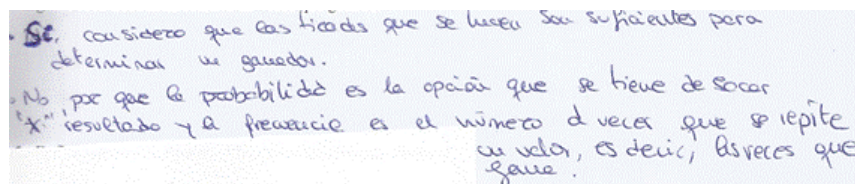 . Si, considero que las tiradas que se hacen son suficientes para
determinar un ganador.
. No, por que la probabilidad es la opción que se tiene de sacar
"x" resultado y la frecuencia es el número d veces que se repite
un valor, es decir, las veces que
gana.